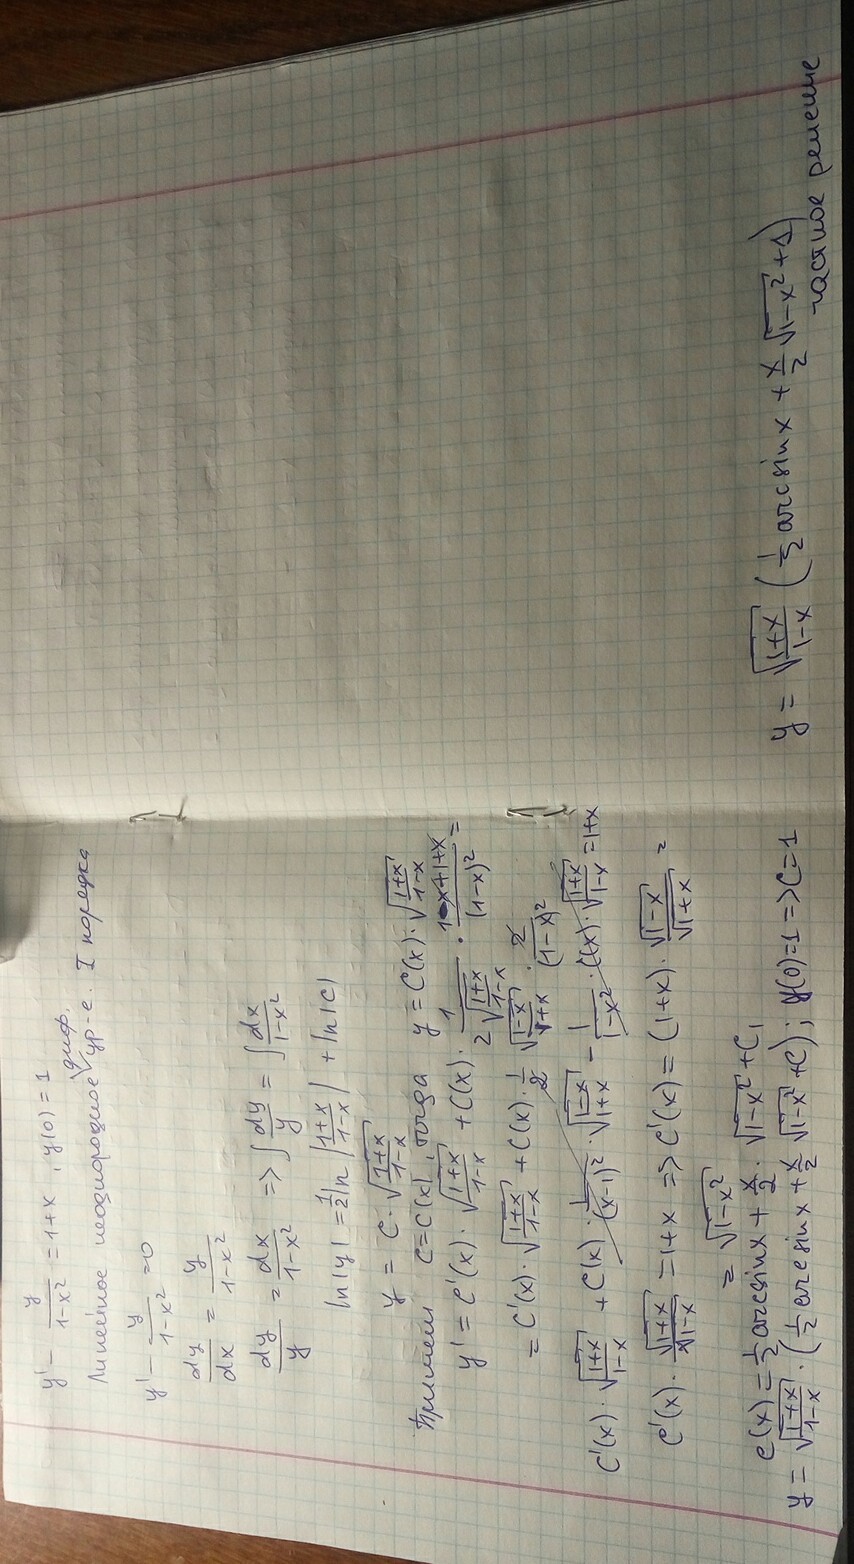 y' - y/(1-x²) = 1+x , y(0) = 1
Линейное неоднородное диф. ур-е. I порядка
y' - y/(1-x²) = 0
dy/dx = y/(1-x²)
dy/y = dx/(1-x²) => ∫ dy/y = ∫ dx/(1-x²)
ln|y| = 1/2 ln |(1+x)/(1-x)| + ln|C|
y = C·√((1+x)/(1-x))
Примем C=C(x), тогда y = C(x)·√((1+x)/(1-x))
y' = C'(x)·√((1+x)/(1-x)) + C(x)· 1/(2√((1+x)/(1-x))) · (1-x+1+x)/(1-x)² =
= C'(x)·√((1+x)/(1-x)) + C(x)· 1/2 · √(1-x)/√(1+x) · 2/(1-x)²
C'(x)·√((1+x)/(1-x)) + C(x)· 1/(x-1)² · √((1-x)/(1+x)) - 1/(1-x²) · C(x)·√((1+x)/(1-x)) = 1+x
C'(x)· √((1+x)/(1-x)) = 1+x => C'(x) = (1+x)· √(1-x)/√(1+x) =
= √(1-x²)
C(x) = 1/2 arcsin x + x/2 · √(1-x²) + C₁
y = √((1+x)/(1-x)) · (1/2 arcsin x + x/2 √(1-x²) + C) ; y(0)=1 => C=1
y = √((1+x)/(1-x)) (1/2 arcsin x + x/2 √(1-x²) + 1)
частное решение